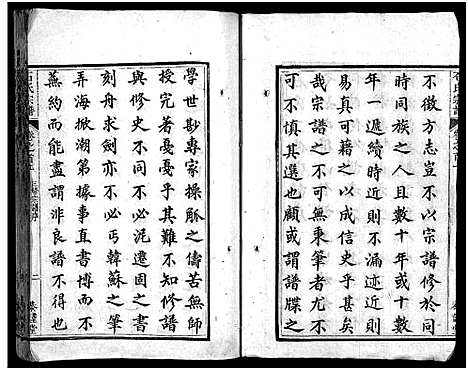 不徵方志豈不以宗譜修於同
時同族之人且數十或十數
年一遞續時近則不潤迹近則
易真可以成信史乎甚矣
哉宗譜之不可無秉筆者尤不
可以不慎其選也顧或謂譜牒之
學世尠專家操觚之儔苦無師
授完著憂憂乎其難不知修譜
與修史不同不必泥遷固之書
刻舟求劍亦不必丐韓蘇之筆
弄海掀潮第據事直書博而不
蕪約而能盡謂非良譜不得也
石氏宗譜
二